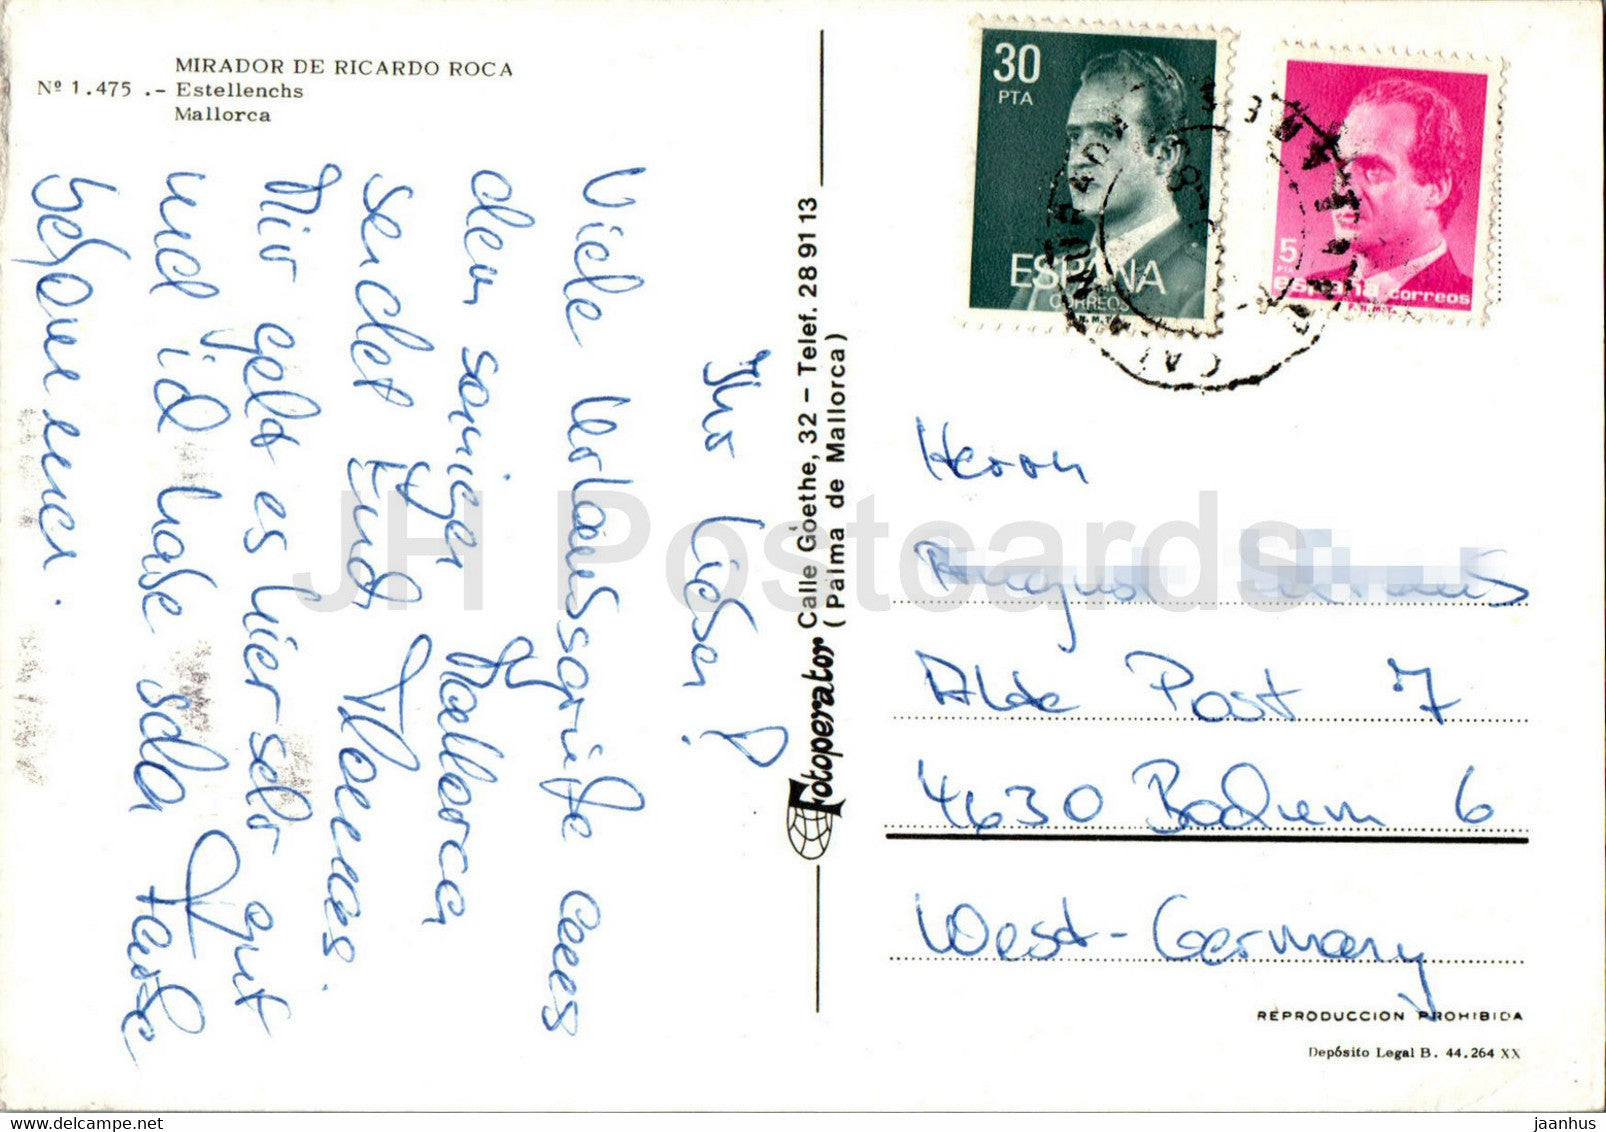 MIRADOR DE RICARDO ROCA
Nº 1.475 .- Estellenchs
Mallorca
Ihr Lieben!
Viele Urlaubsgrüße aus
dem sonnigen Mallorca
sendet Euch Thomas.
Mir geht es hier sehr gut
und ich habe schon Farbe
bekommen.
Fotoperator Calle Goethe, 32 - Telef. 28 91 13
(Palma de Mallorca)
30
PTA
ESPAÑA
CORREOS
F.N.M.T.
5
PTA
españa correos
F.N.M.T.
Herrn
August
Alte Post 7
4630 Bochum 6
West-Germany
REPRODUCCION PROHIBIDA
Depósito Legal B. 44.264 XX
JH Postcards
jaanhus